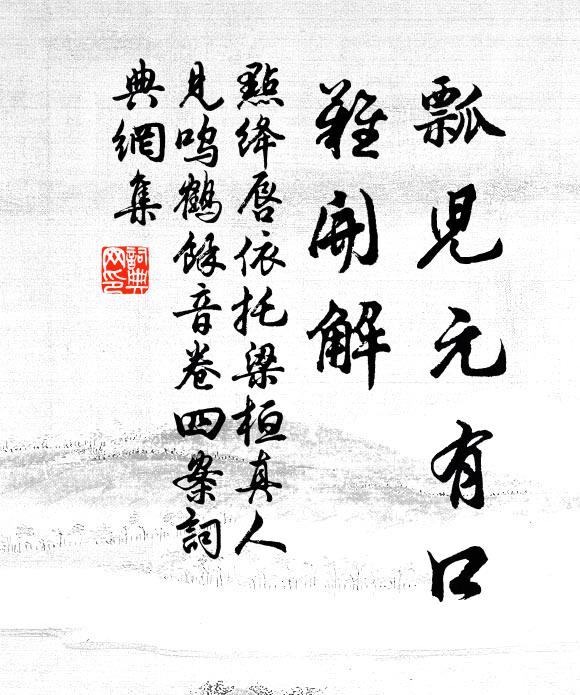 瓢兒元有口
難開解
點絳唇依托梁桓真人
見鳴鶴餘音卷四案詞
典網集
詞典
网印